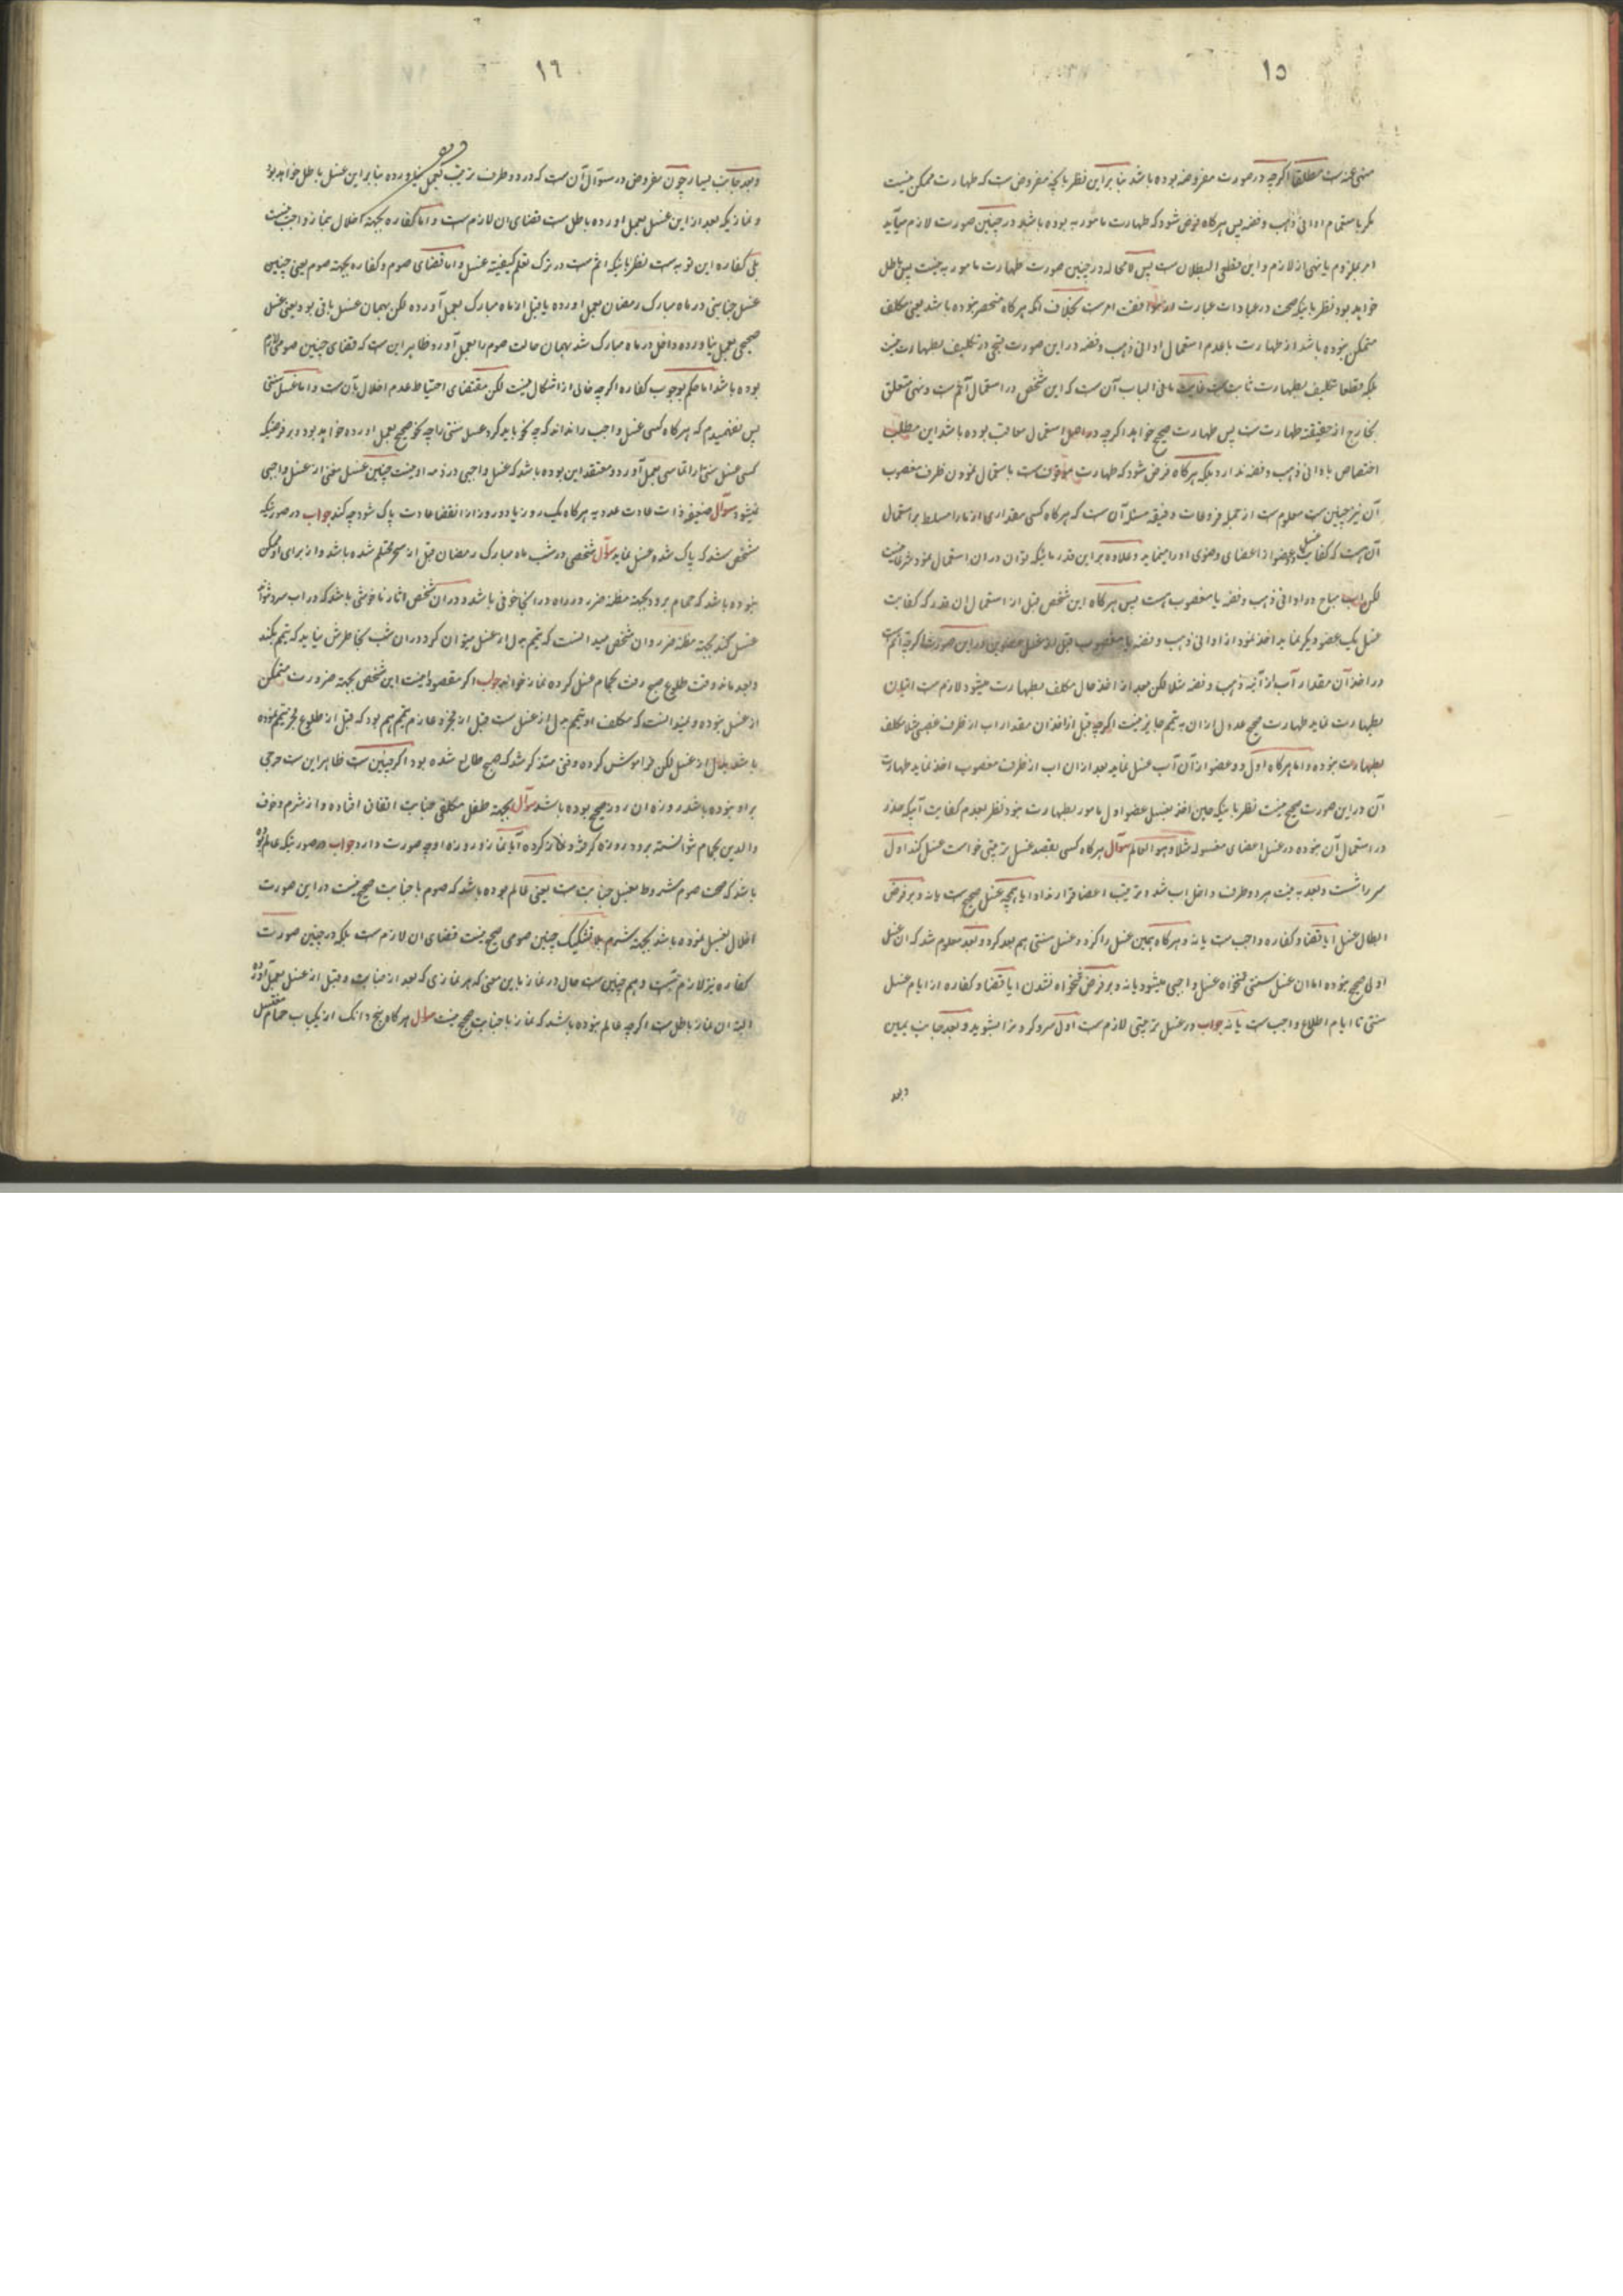 ١٥
منهی عنه است مطلقا اگرچه در صورت مفروضه بوده باشد بنا براین نظر بانکه مفروض است که طهارت ممکن نیست
مگر باستعمال اوانی ذهب و فضه پس هرگاه فرض شود که طهارت مامور به بوده باشد در چنین صورت لازم میاید
امر بملزوم با نهی از لازم و این قطعی البطلان است پس لا محاله در چنین صورت طهارت مامور به نیست پس باطل
خواهد بود نظر باینکه صحت در عبادات عبارت از موافقت امر است بخلاف انکه هرگاه منحصر نبوده باشد یعنی مکلف
متمکن بوده باشد از طهارت با عدم استعمال اوانی ذهب و فضه در این صورت قبحی در تکلیف بطهارت نیست
بلکه قطعا تکلیف بطهارت ثابت است غایت ما فی الباب آن است که این شخص در استعمال آثم است و نهی متعلق
بخارج از حقیقة طهارت است پس طهارت صحیح خواهد اگرچه در اصل استعمال معاقب بوده باشد این مطلب
اختصاص باوانی ذهب و فضه ندارد بلکه هرگاه فرض شود که طهارت موقوف است باستعمال نمودن ظرف مغصوب
آن نیز چنین است معلوم است از جمله فروعات دقیقه مسئله آن است که هرگاه کسی مقداری از ما را مسلط بر استعمال
آن هست که کفایت غسل دو عضو از اعضای وضوی او را مینماید و علاوه بر این قدر مائیکه توان در ان استعمال نمود شرعا نیست
لکن اب مباح در اوانی ذهب و فضه یا مغصوب هست پس هرگاه این شخص قبل از استعمال ان قدر که کفایت
غسل یک عضو دیگر نماید اخذ نمود از اوانی ذهب و فضه یا مغصوب قبل از غسل عضوین در این صورت اگرچه آثم است
در اخذ آن مقدار آب از آنیه ذهب و فضه مثلا لکن بعد از اخذ حال مکلف بطهارت میشود و لازم است اتیان
بطهارت نماید طهارت صحیح عدول از ان به تیمم جایز نیست اگرچه قبل از اخذ ان مقدار اب از ظرف غصبی مثلا مکلف
بطهارت نبوده و اما هرگاه اول دو عضو از آن آب غسل نماید بعد از ان اب از ظرف مغصوب اخذ نماید طهارت
آن در این صورت صحیح نیست نظر باینکه حین اخذ بغسل عضو اول مامور بطهارت نبود نظر بعدم کفایت آبیکه
در استعمال آن نبوده در غسل اعضای مغسوله مثلا و هو العالم سوآل هرگاه کسی بقصد غسل ترتیبی خواست غسل کند اول
سر را شست و بعد به نیت هر دو طرف داخل اب شد و ترتیب اعضا قرار نداد ایا همچه غسل صحیح است یا نه و بر فرض
ابطال غسل ایا قضا و کفاره واجب است یا نه و هرگاه بهمین غسل را کرد و غسل سنتی هم بعد کرد و بعد معلوم شد که ان غسل
اولی صحیح نبوده اما ان غسل سنتی فتخواه غسل واجبی میشود یا نه و بر فرض فتخواه نشدن ایا قضا و کفاره از ایام غسل
سنتی تا ایام اطلاع واجب است یا نه جواب در غسل ترتیبی لازم است اول سر و گردن را بشوید و بعد جانب یمین
وبعد
١٦
و بعد جانب یسار چون مفروض در سوآل آن است که در دو طرف ترتیب بعمل نیاورده بنابراین غسل باطل خواهد بود
و نمازیکه بعد از این غسل بعمل اورده باطل است قضای ان لازم است و اما کفاره بجهة اخلال بنماز واجب نیست
بلی کفاره این توبه است نظر باینکه اثم است در ترک تعلم کیفیة غسل و اما قضای صوم و کفاره بجهة صوم یعنی چنین
غسل جنابتی در ماه مبارک رمضان بعمل اورده یا قبل از ماه مبارک بعمل آورده لکن بهمان غسل باقی بود یعنی غسل
صحیحی بعمل نیاورده داخل در ماه مبارک شد بهمان حالت صوم را بعمل آورد ظاهر این است که قضای چنین صومی لازم
بوده باشد اما حکم بوجوب کفاره اگرچه خالی از اشکال نیست لکن مقتضای احتیاط عدم اخلال بآن است و اما غسل سنتی
پس نفهمیدم که هرگاه کسی غسل واجب را نداند که چه نحو باید کرد غسل سنتی را چه نحو صحیح بعمل اورده خواهد بود و بر فرضیکه
کسی غسل سنتی را بعمل آورد و معتقد این بوده باشد که غسل واجبی در ذمه او نیست چنین غسل مغنی از غسل واجبی
نمیشود سوآل ضعیفه ذات عادت عددیه هرگاه یک روز یا دو روز از انقضا عادت پاک شود چه کند جواب در صورتیکه
مشخص شد که پاک شده غسل نماید سوآل شخصی در شب ماه مبارک رمضان قبل از سحر محتلم شده باشد و از برای او ممکن
نبوده باشد که حمام برود بجهة مظنه ضرر در راه در انجا خوفی باشد و در ان شخص اثار ناخوشی باشد که در اب سرد نتواند
غسل کند بجهة مظنه ضرر و ان شخص میدانست که تیمم بدل از غسل میتوان کرد در ان شب بخاطرش نیاید که تیمم بکند
و بعد مانه وقت طلوع صبح رفت بحمام غسل کرده نماز خواند جواب اگر مقصود اینست این شخص بجهة ضرورت متمکن
از غسل نبوده و میدانست که مکلف او تیمم بدل از غسل است قبل از فجر و عازم بتیمم هم بود که قبل از طلوع فجر تیمم نموده
باشد بدل از غسل لکن فراموشش کرده وقتی متذکر شد که صبح طالع شده بود اگر چنین است ظاهر این است حرجی
بر او نبوده باشد روزه ان روز صحیح بوده باشد سوآل بجهة طفل مکلفی جنابت اتفاق افتاده و از شرم و خوف
والدین بحمام نتوانسته برود روزه گرفته و نماز کرده آیا نماز و روزه او چه صورت دارد جواب در صورتیکه عالم بوده
باشد که صحت صوم مشروط بغسل جنابت است یعنی عالم بوده باشد که صوم با جنابت صحیح نیست در این صورت
اخلال بغسل نموده باشد بجهة شرم بلا تشکیک چنین صومی صحیح نیست قضای ان لازم است بلکه در چنین صورت
کفاره نیز لازم است و هم چنین است حال در نماز باین معنی که هر نمازی که بعد از جنابت و قبل از غسل بعمل آورده
البته ان نماز باطل است اگرچه عالم نبوده باشد که نماز با جنابت صحیح نیست سوآل هرگاه پنج دانگ از یکباب حمام